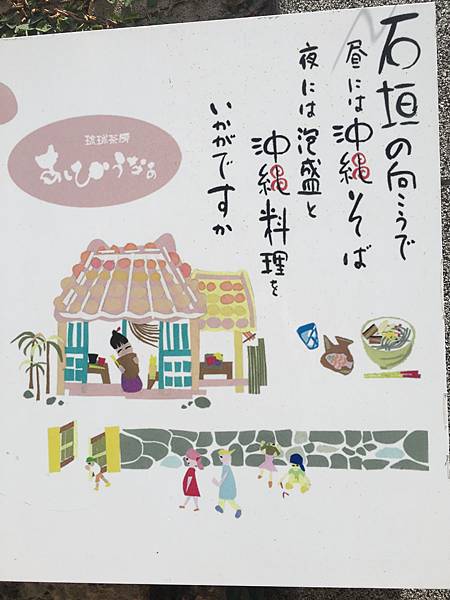 石垣の向こうで
昼には沖縄そば
夜には泡盛と
沖縄料理を
いかがですか
琉球茶房
あしびうなぁ